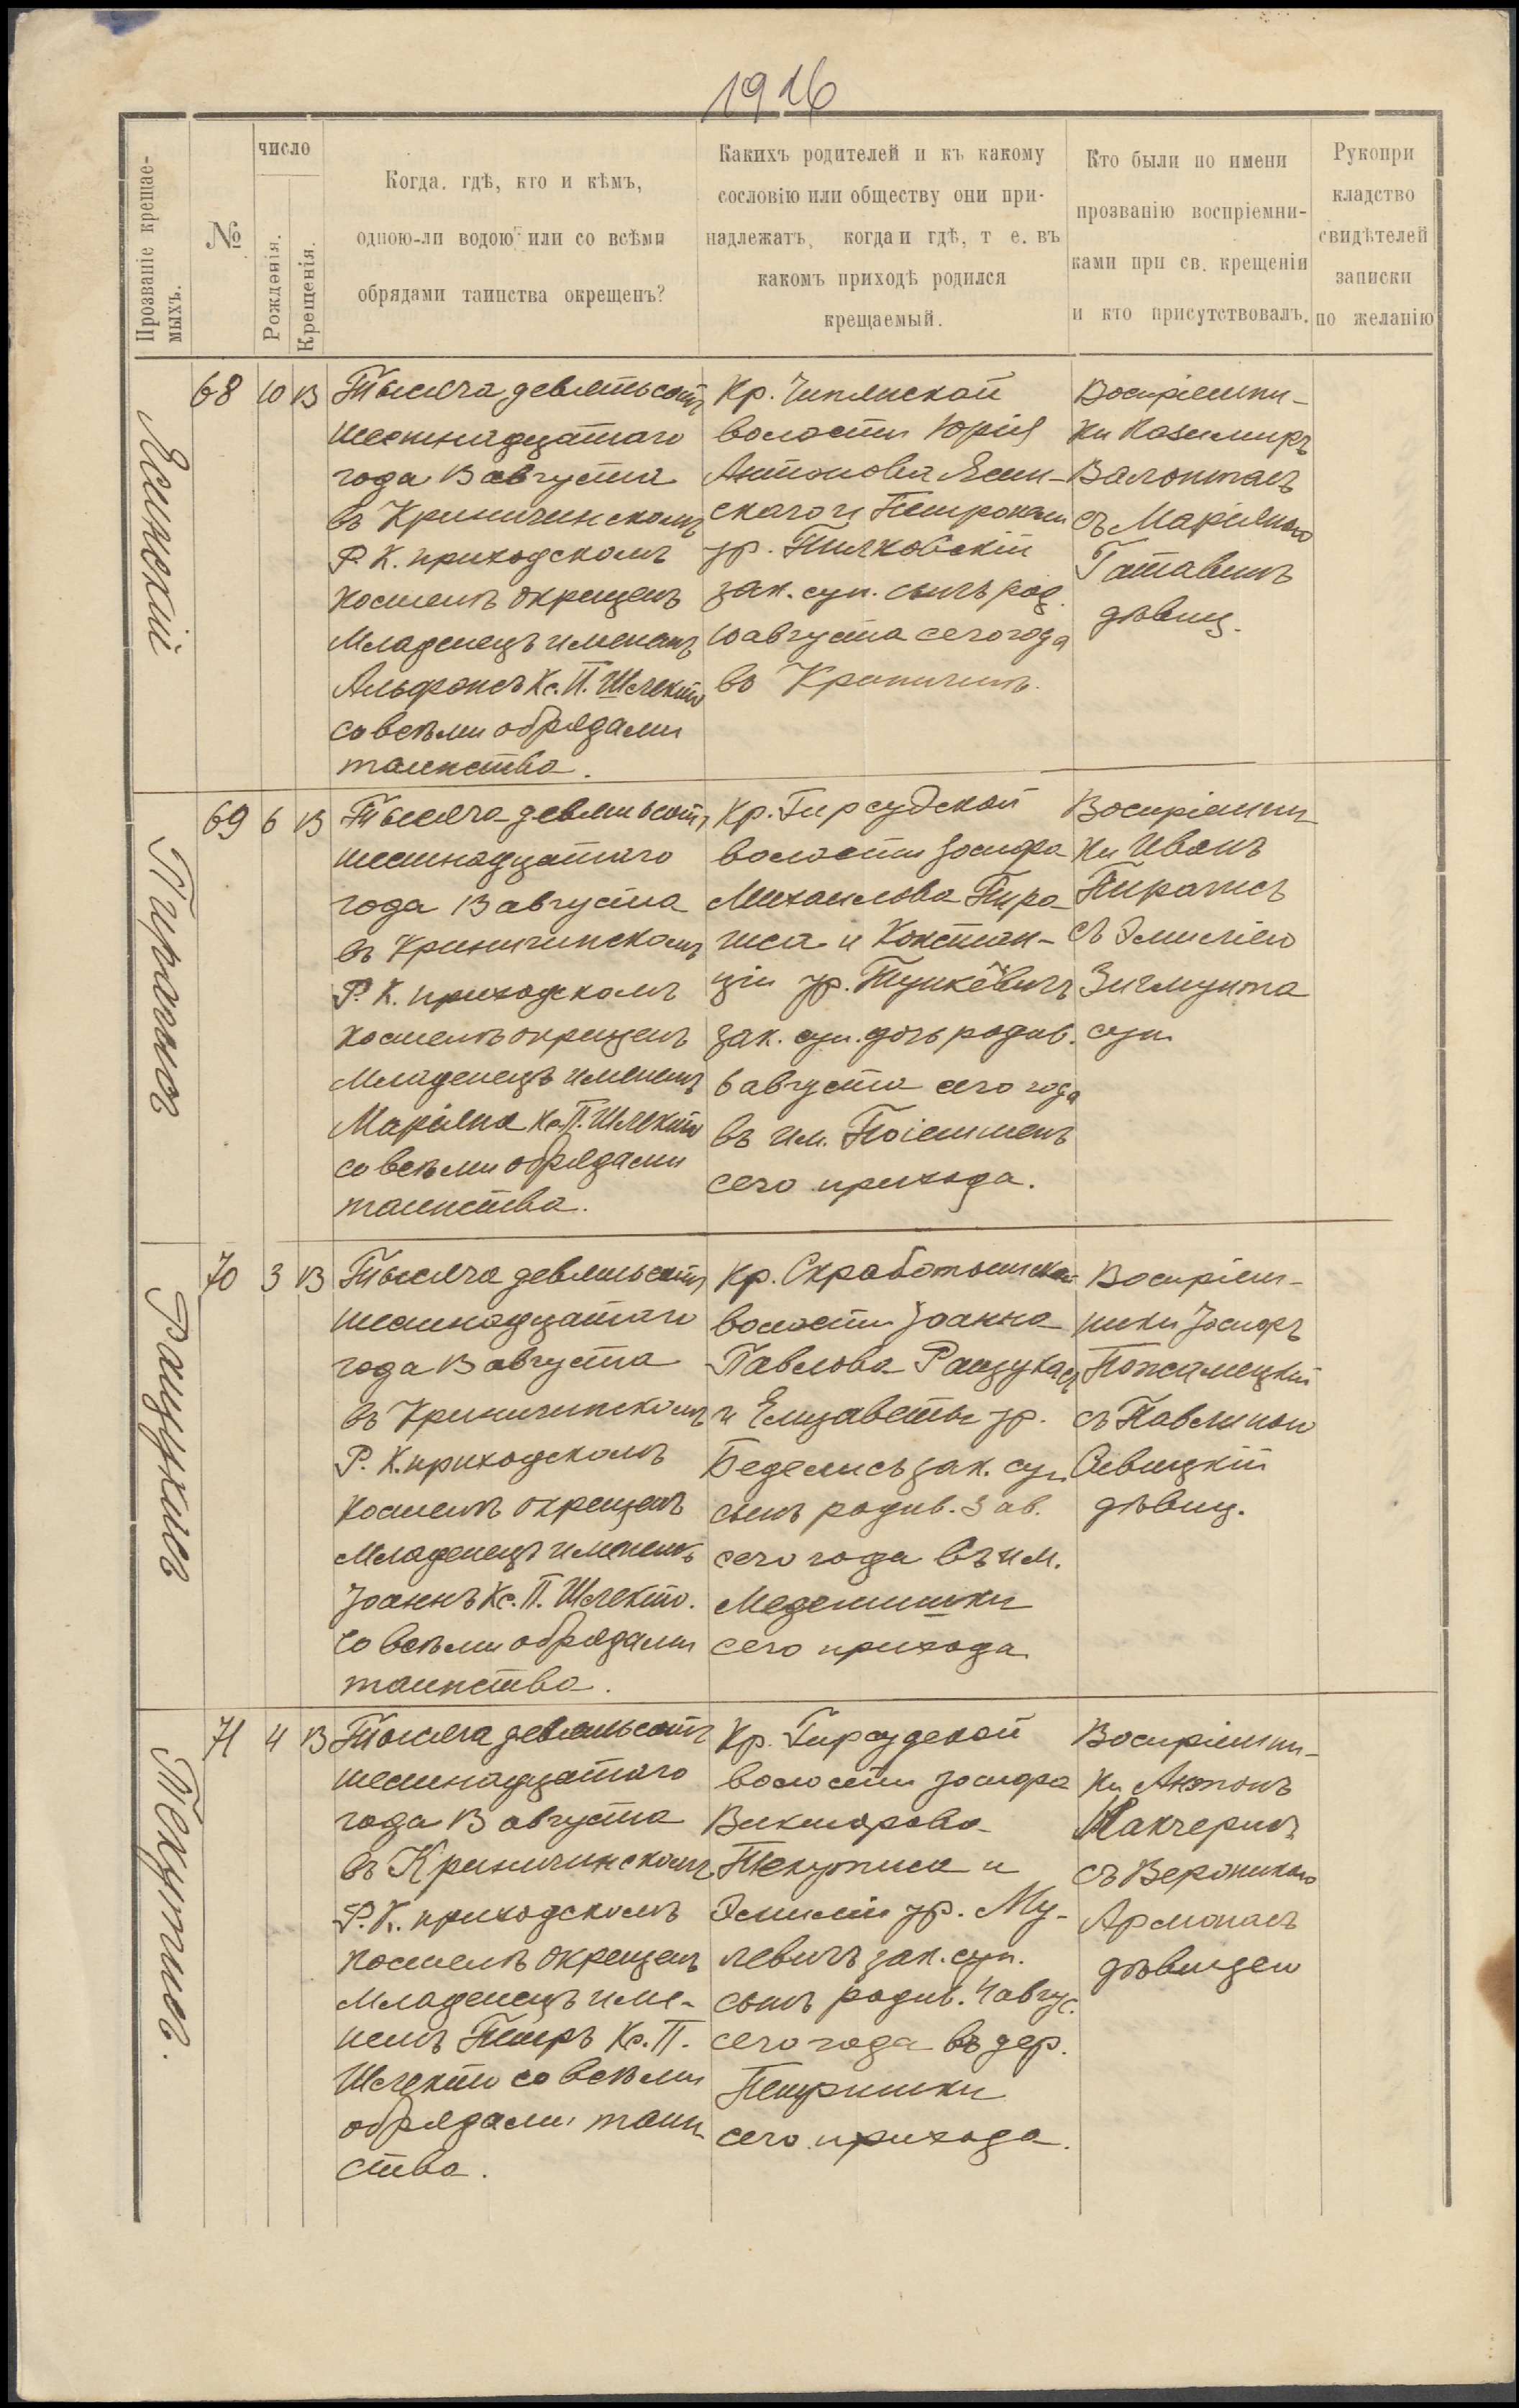 1916
Прозваніе крещае-
мыхъ.
№
число
Рожденія.
Крещенія.
Когда, гдѣ, кто и кѣмъ,
одною-ли водою или со всѣми
обрядами таинства окрещенъ?
Какихъ родителей и къ какому
сословію или обществу они при-
надлежатъ, когда и гдѣ, т е. въ
какомъ приходѣ родился
крещаемый.
Кто были по имени
прозванію воспріемни-
ками при св. крещеніи
и кто присутствовалъ.
Рукопри
кладство
свидѣтелей
записки
по желанію
Ясинскій
68 10 13
Тысяча девятьсотъ
шестнадцатаго
года 13 августа
въ Криничинскомъ
Р. К. приходскомъ
костелѣ окрещенъ
Младенецъ именемъ
Альфонсъ Кс. П. Шлекто
со всѣми обрядами
таинства.
Кр. Чиплиской
волости Юрія
Антонова Ясин-
скаго и Петронели
ур. Пилховскій
зак. суп. сынъ род.
10 августа сего года
въ Криничинѣ.
Воспріемни-
ки Казимиръ
Валонтасъ
съ Маріяною
Гатавецъ
дѣвиц.
Пиратос
69 6 13
Тысяча девятьсотъ
шестнадцатаго
года 13 августа
въ Криничинскомъ
Р. К. приходскомъ
костелѣ окрещенъ
Младенецъ именемъ
Маріяна Кс. П. Шлекто
со всѣми обрядами
таинства.
Кр. Гирсудской
волости Іосифа
Михаилова Пира-
тиса и Констан-
ціи ур. Тункевичъ
зак. суп. дочь родив.
6 августа сего года
въ им.
сего прихода.
Воспріемни-
ки Иванъ
Пиратисъ
съ Эмиліею
Зигмунта
суп.
Ращукас
70 3 13
Тысяча девятьсотъ
шестнадцатаго
года 13 августа
въ Криничинскомъ
Р. К. приходскомъ
костелѣ окрещенъ
Младенецъ именемъ
Іоаннъ Кс. П. Шлекто.
со всѣми обрядами
таинства.
Кр. Скработишской
волости Іоанна
Павлова Ращукаса
и Елизаветы ур.
Беделисъ зак. суп.
сынъ родив. 3 ав.
сего года въ им.
Меделишки
сего прихода
Воспріем-
ники Іосифъ
Пожамецкій
съ Павлиною
Савицкій
дѣвиц.
Текутис.
71 4 13
Тысяча девятьсотъ
шестнадцатаго
года 13 августа
въ Криничинскомъ
Р. К. приходскомъ
костелѣ окрещенъ
Младенецъ име-
немъ Петръ Кс. П.
Шлекто со всѣми
обрядами таин
ства.
Кр. Гирсудской
волости Іосифа
Викторова
Текутиса и
Эмиліи ур. Му-
левичъ зак. суп.
сынъ родив. 4 авгус.
сего года въ дер.
Петришки
сего прихода.
Воспріемни-
ки Антонъ
Манчерисъ
съ Вероникою
Армонасъ
дѣвицею